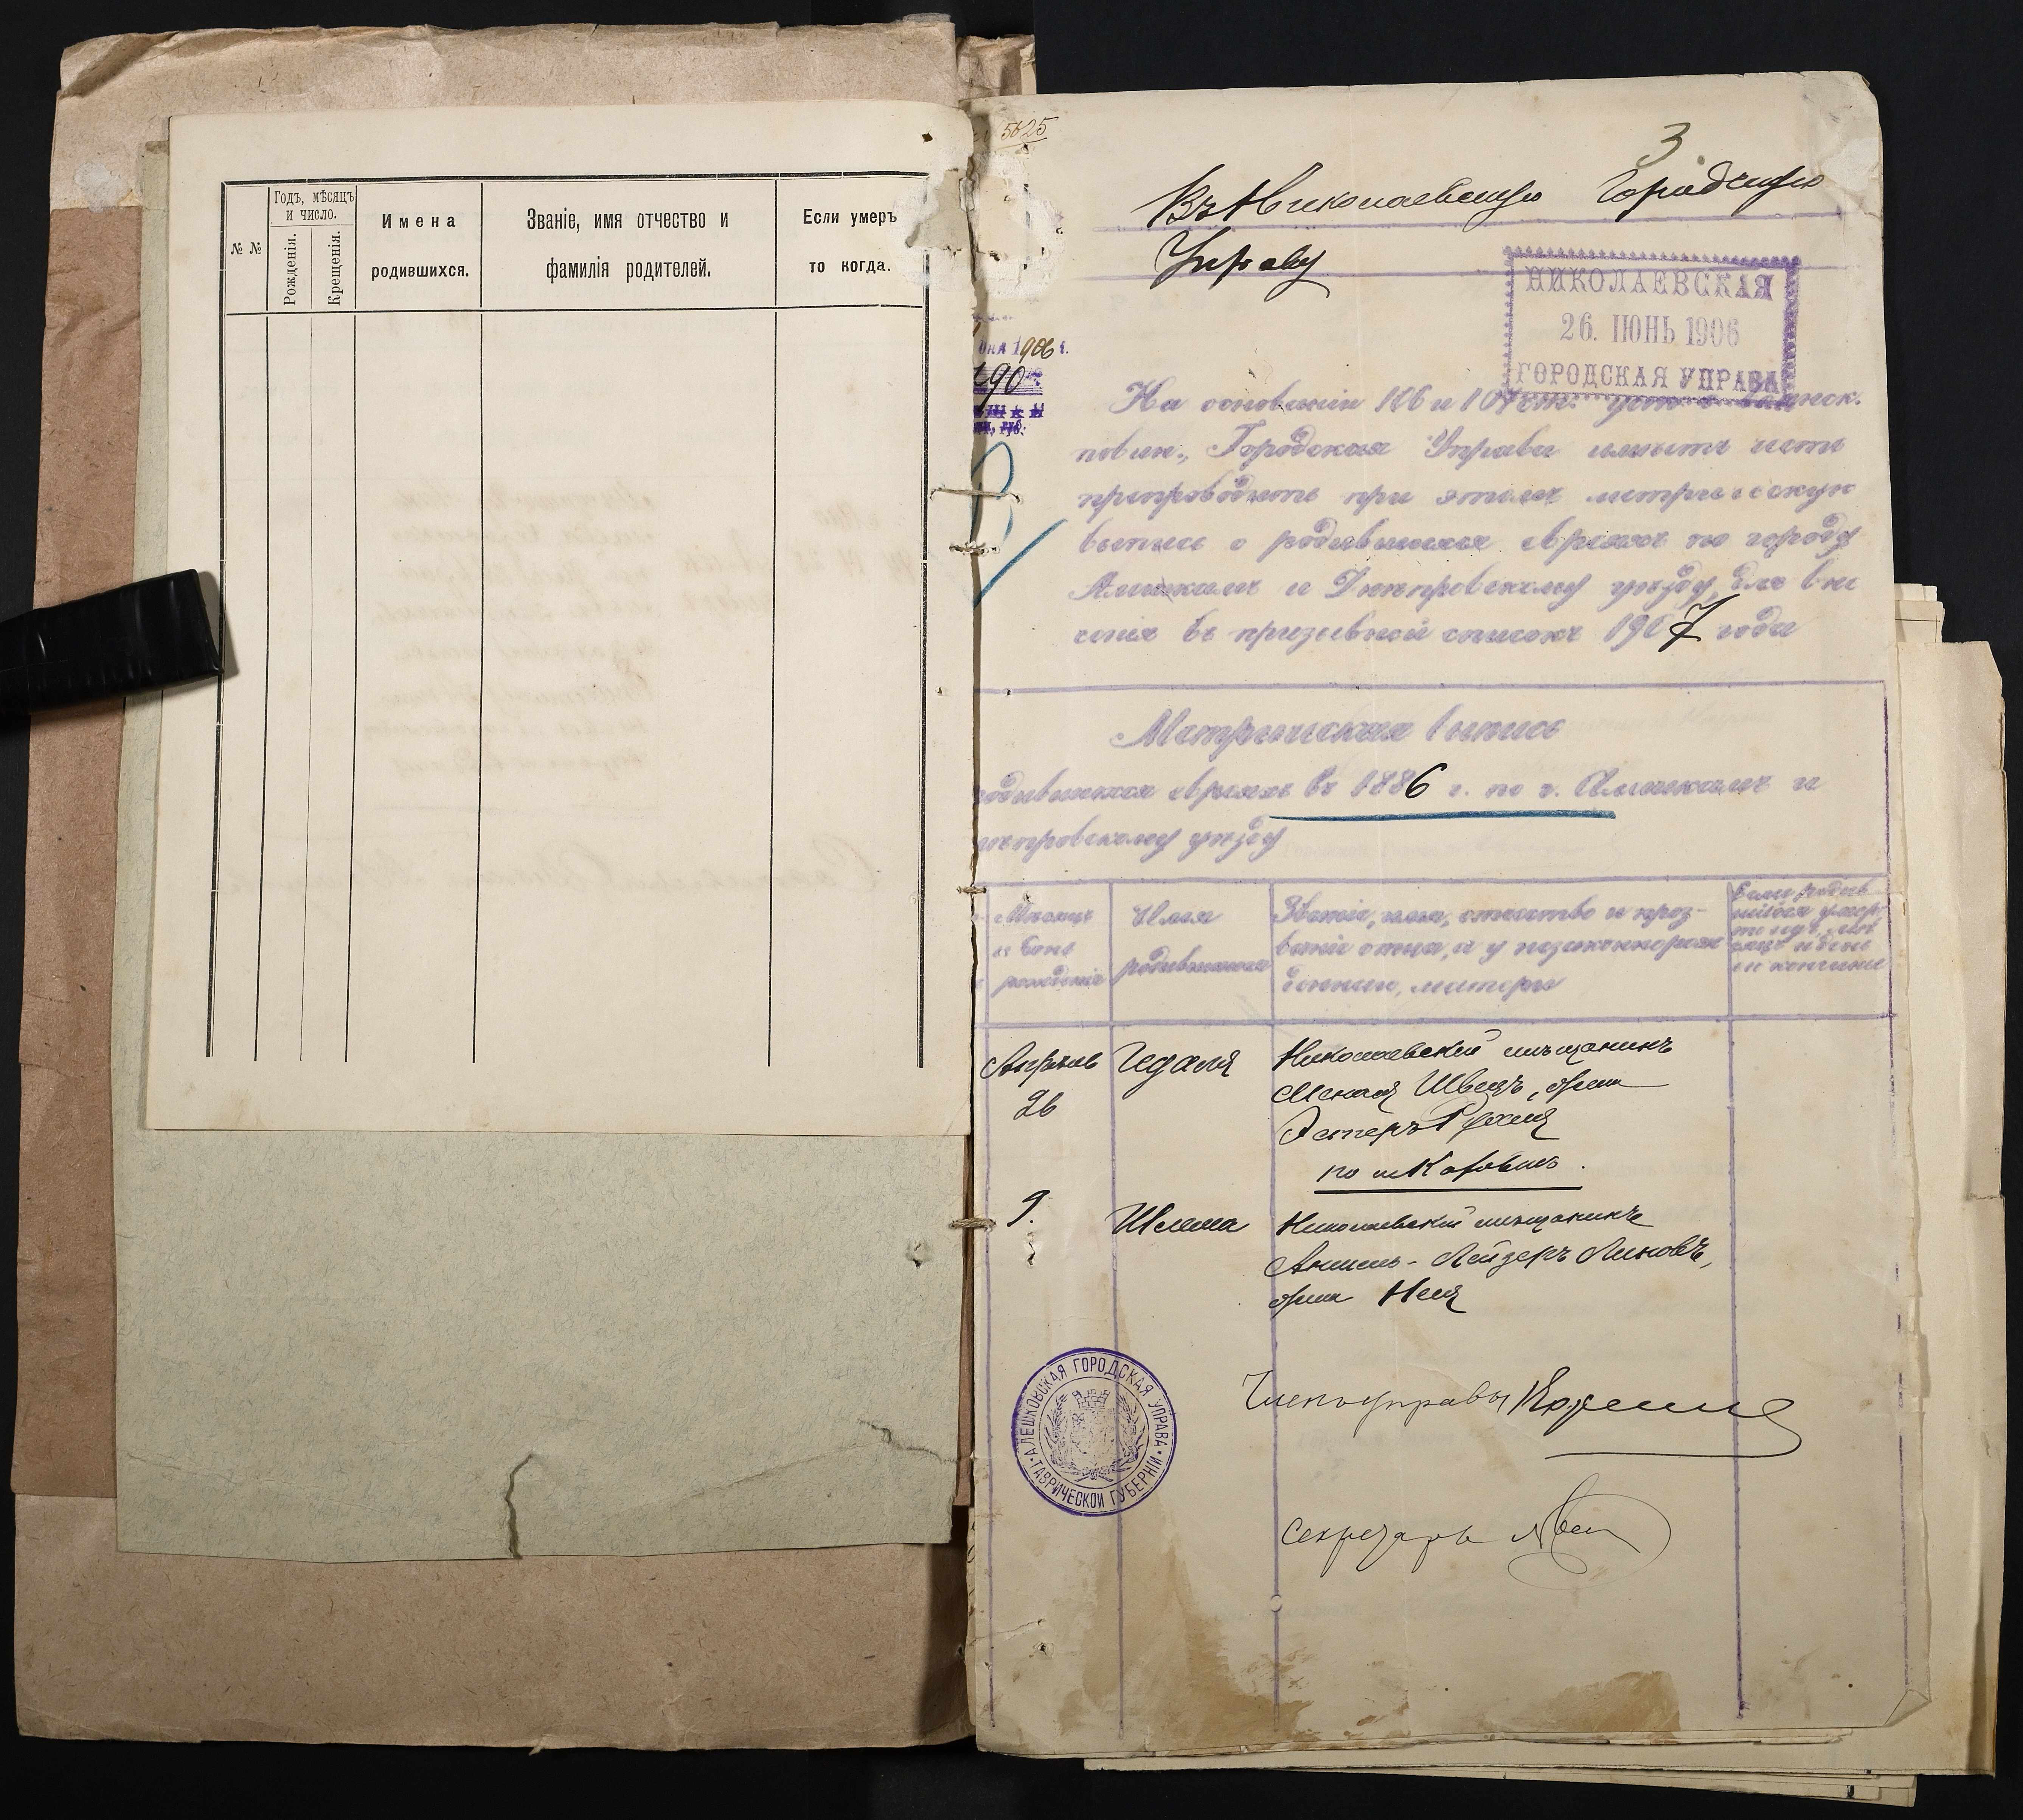 № №
Годъ, мѣсяцъ
и число.
Рожденія.
Крещенія.
Имена
родившихся.
Званіе, имя отчество и
фамилія родителей.
Если умеръ
то когда.
5625
3
Въ Николаевскую Городскую
Управу
НИКОЛАЕВСКАЯ
26. ІЮНЬ 1906
ГОРОДСКАЯ УПРАВА
1906 г.
190
На основаніи 106 и 107 ст. уст. о воинск.
повин., Городская Управа имѣетъ честь
препроводить при этомъ метрическую
выпись о родившихся евреяхъ по городу
Алешкамъ и Днѣпровскому уѣзду, для вне
сенія въ призывной списокъ 1907 года
Метрическая выпись
родившихся евреяхъ въ 1886 г. по г. Алешкамъ и
нѣпровскому уѣзду
Мѣсяцъ
и день
рожденія
Имя
родившихся
Званіе, имя, отчество и проз-
ваніе отца, а у незаконнорож
денныхъ, матери
Если родив
шійся умеръ,
то годъ, мѣ
сяцъ и день
его кончины
Апрѣль
26
Гедаля
Николаевскій мѣщанинъ
Менаш Швецъ, жена
Эстеръ Рухля
по
9.
Шлема
Николаевскій мѣщанинъ
Аншель-Лейзеръ Линовъ,
жена Неся
АЛЕШКОВСКАЯ ГОРОДСКАЯ УПРАВА
ТАВРИЧЕСКОЙ ГУБЕРНІИ
Членъ управы
Секретарь